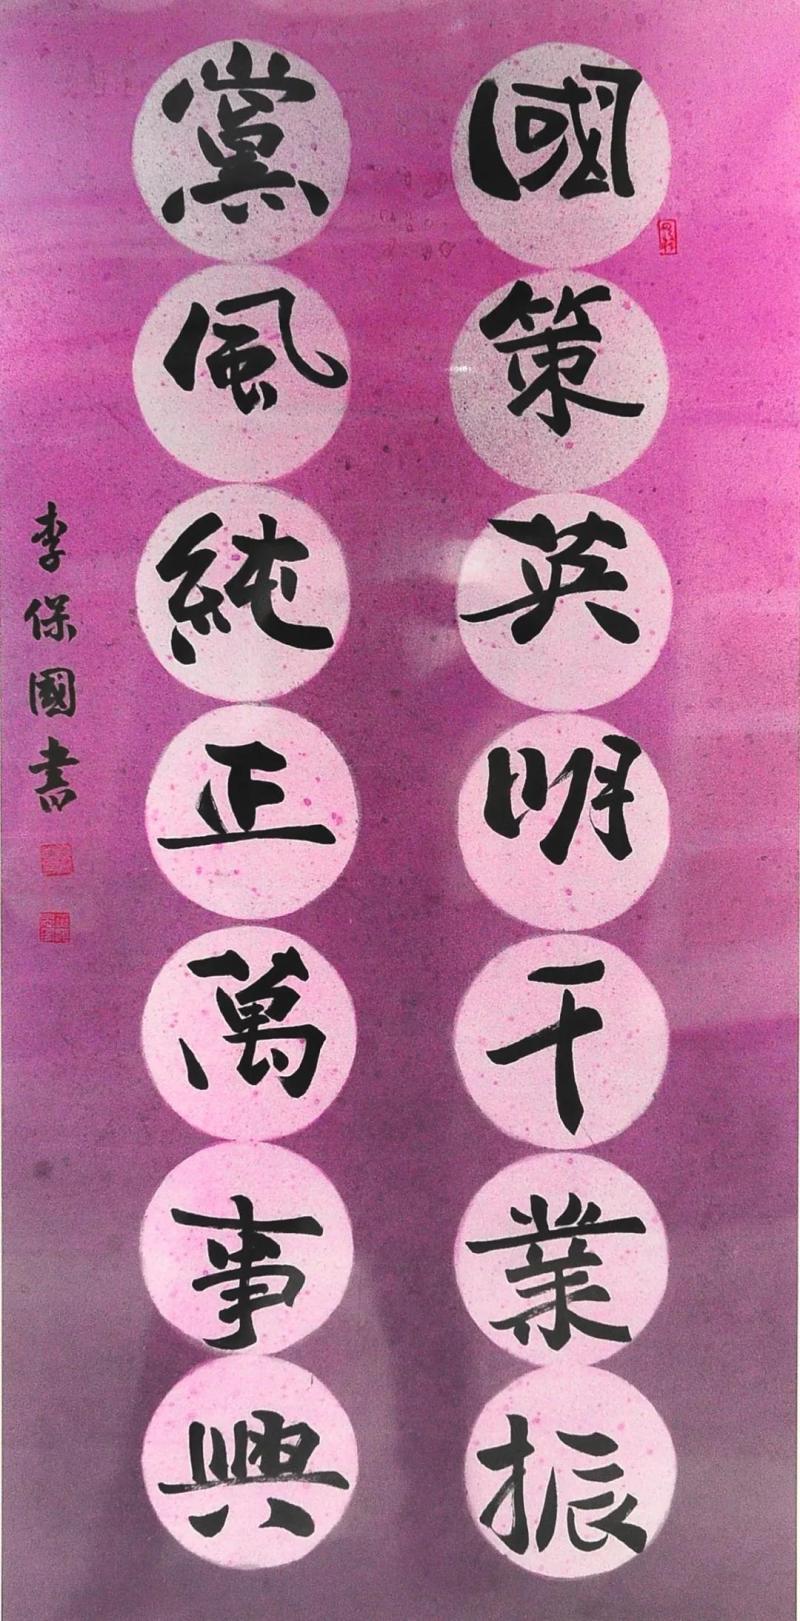 國策英明千業振
黨風純正萬事興
李保國書